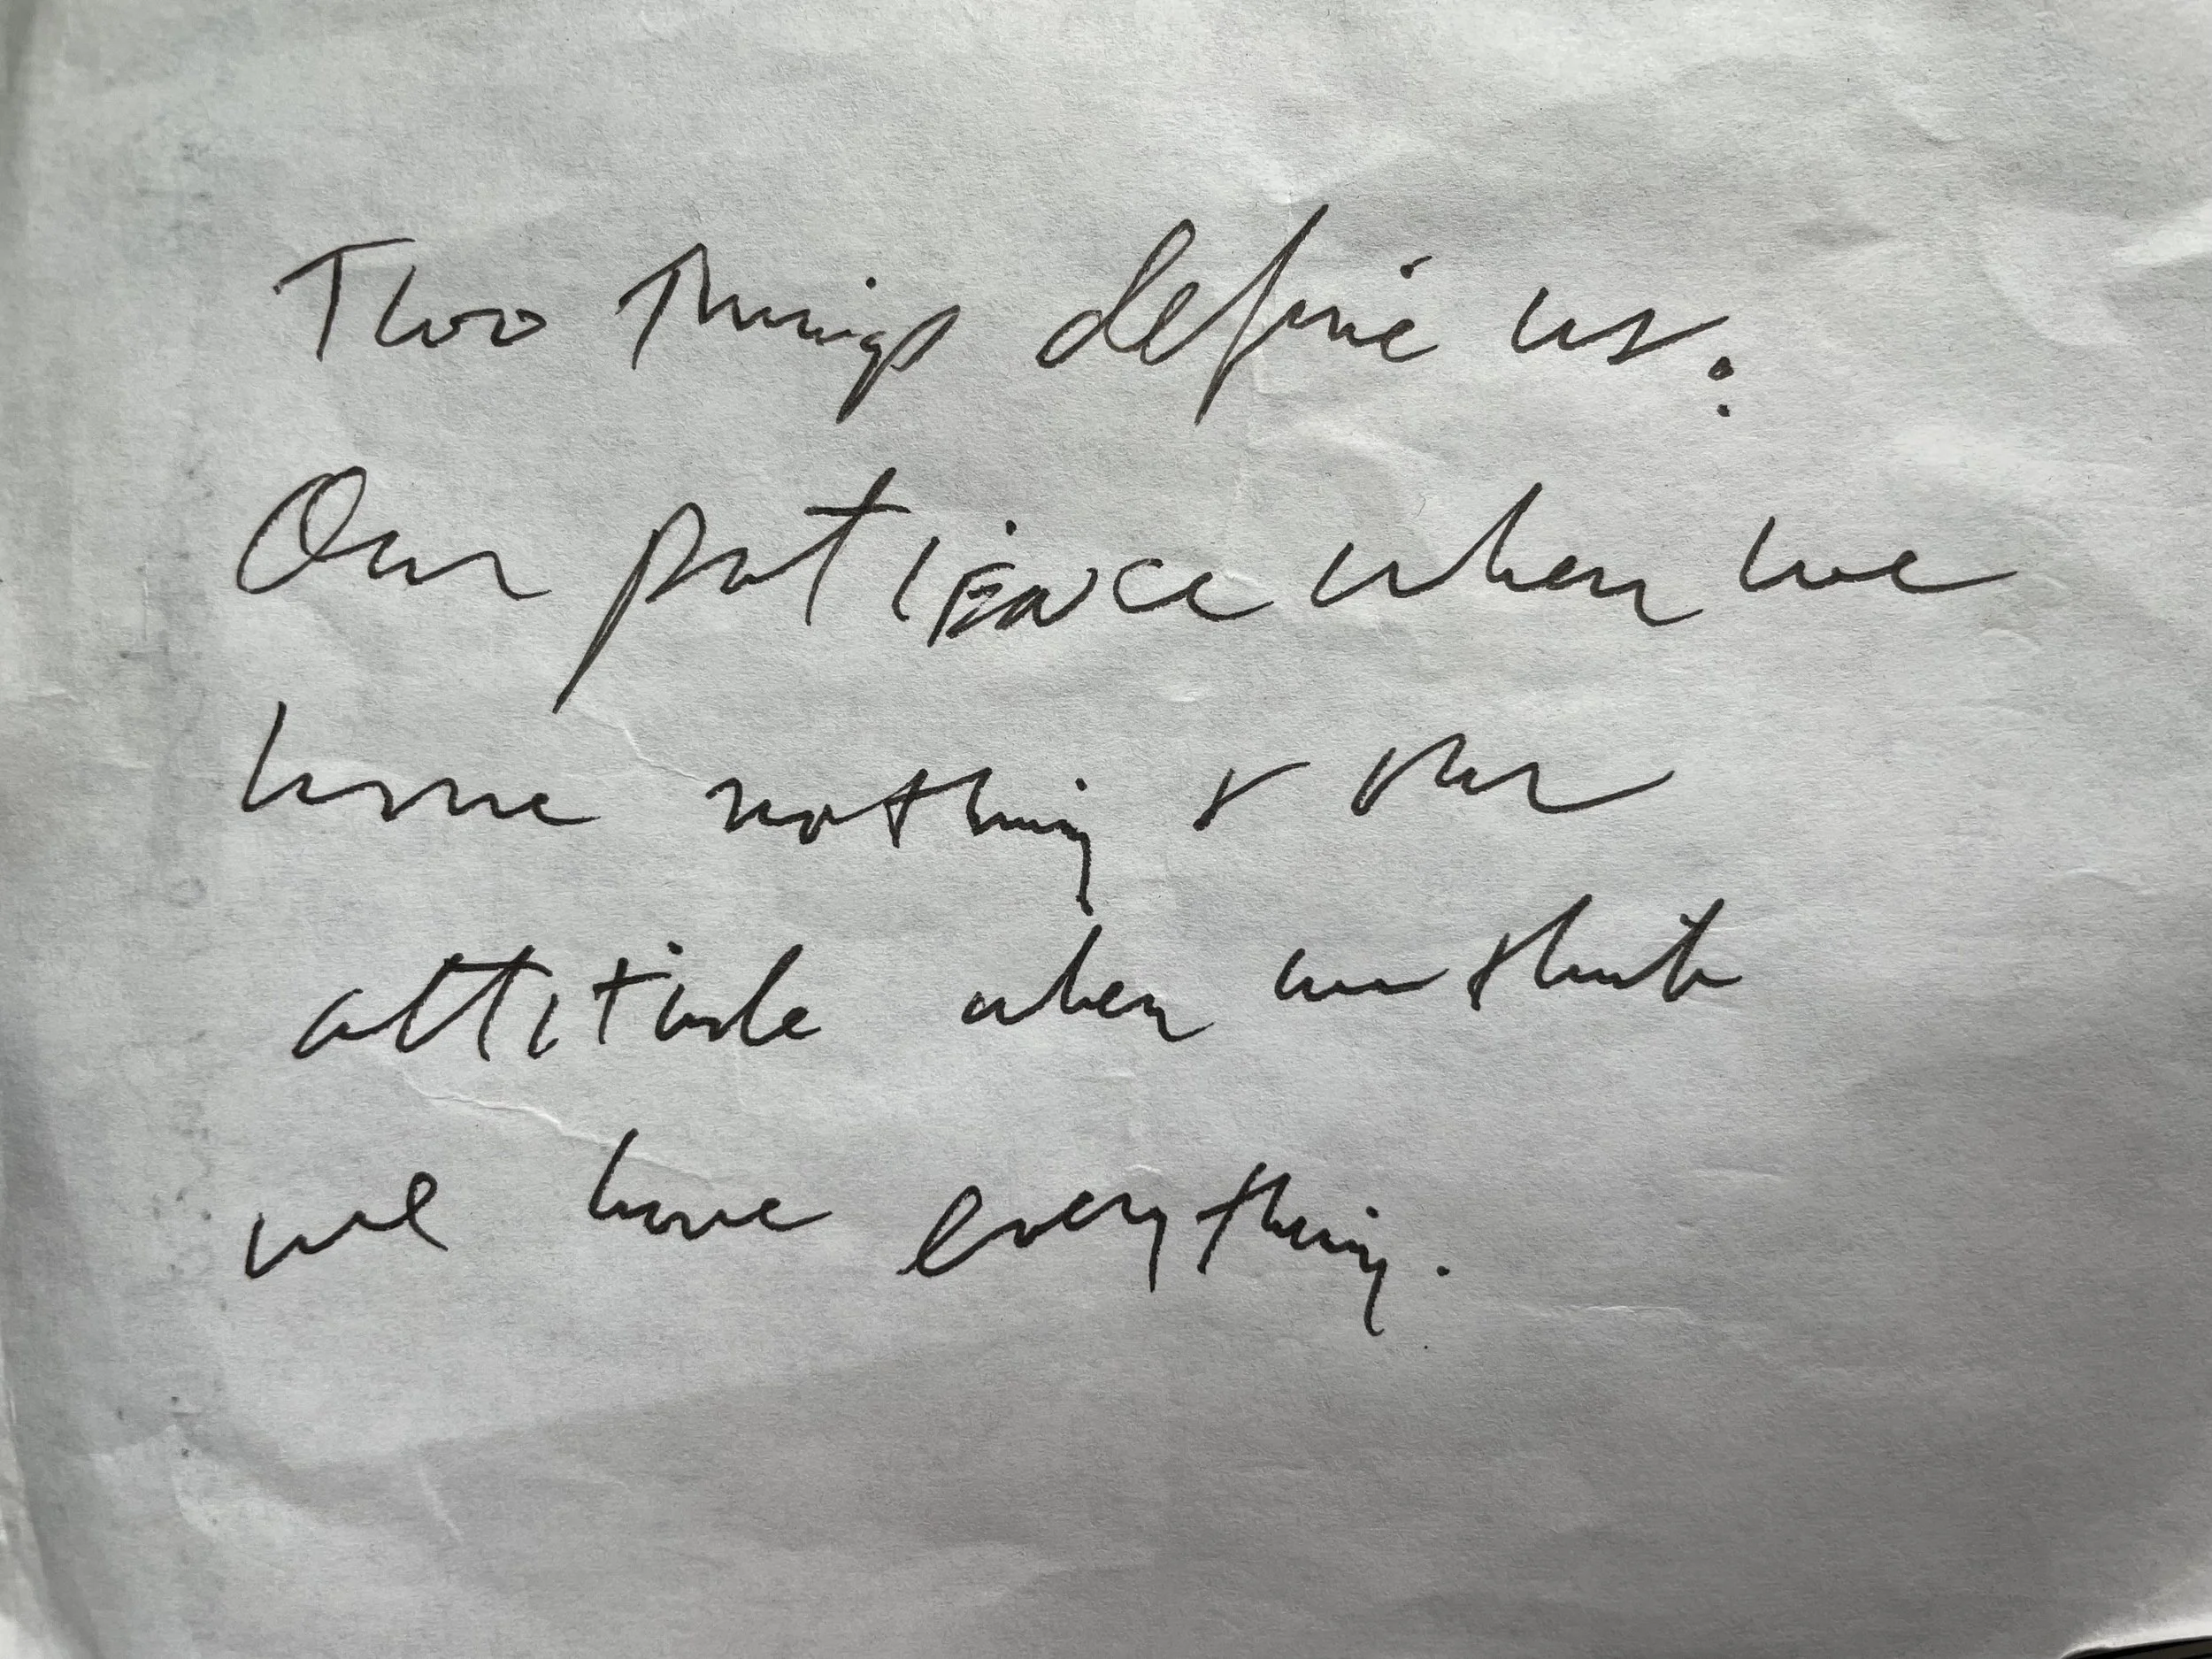 Two Things define us:
Our patience when we
have nothing & our
attitude when we think
we have everything.